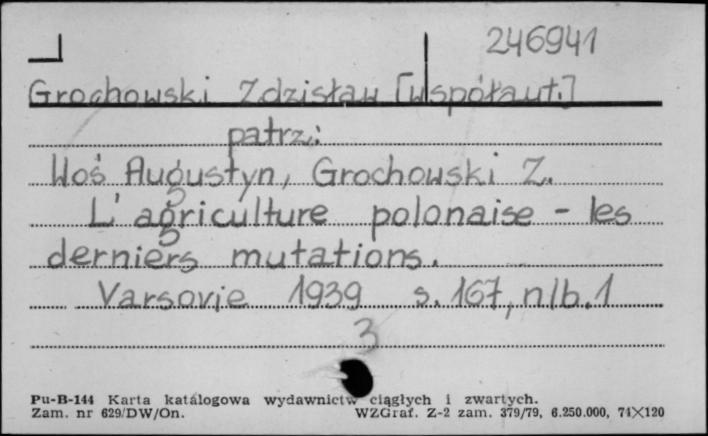 246941
Grochowski Zdzisław [współaut.]
patrz:
Woś Augustyn, Grochowski Z.
L'agriculture polonaise - les
derniers mutations.
Varsovie 1939 s. 167, nlb. 1
3
Pu-B-144 Karta katalogowa wydawnictw ciągłych i zwartych.
Zam. nr 629/DW/On. WZGraf. Z-2 zam. 379/79, 6.250.000, 74×120